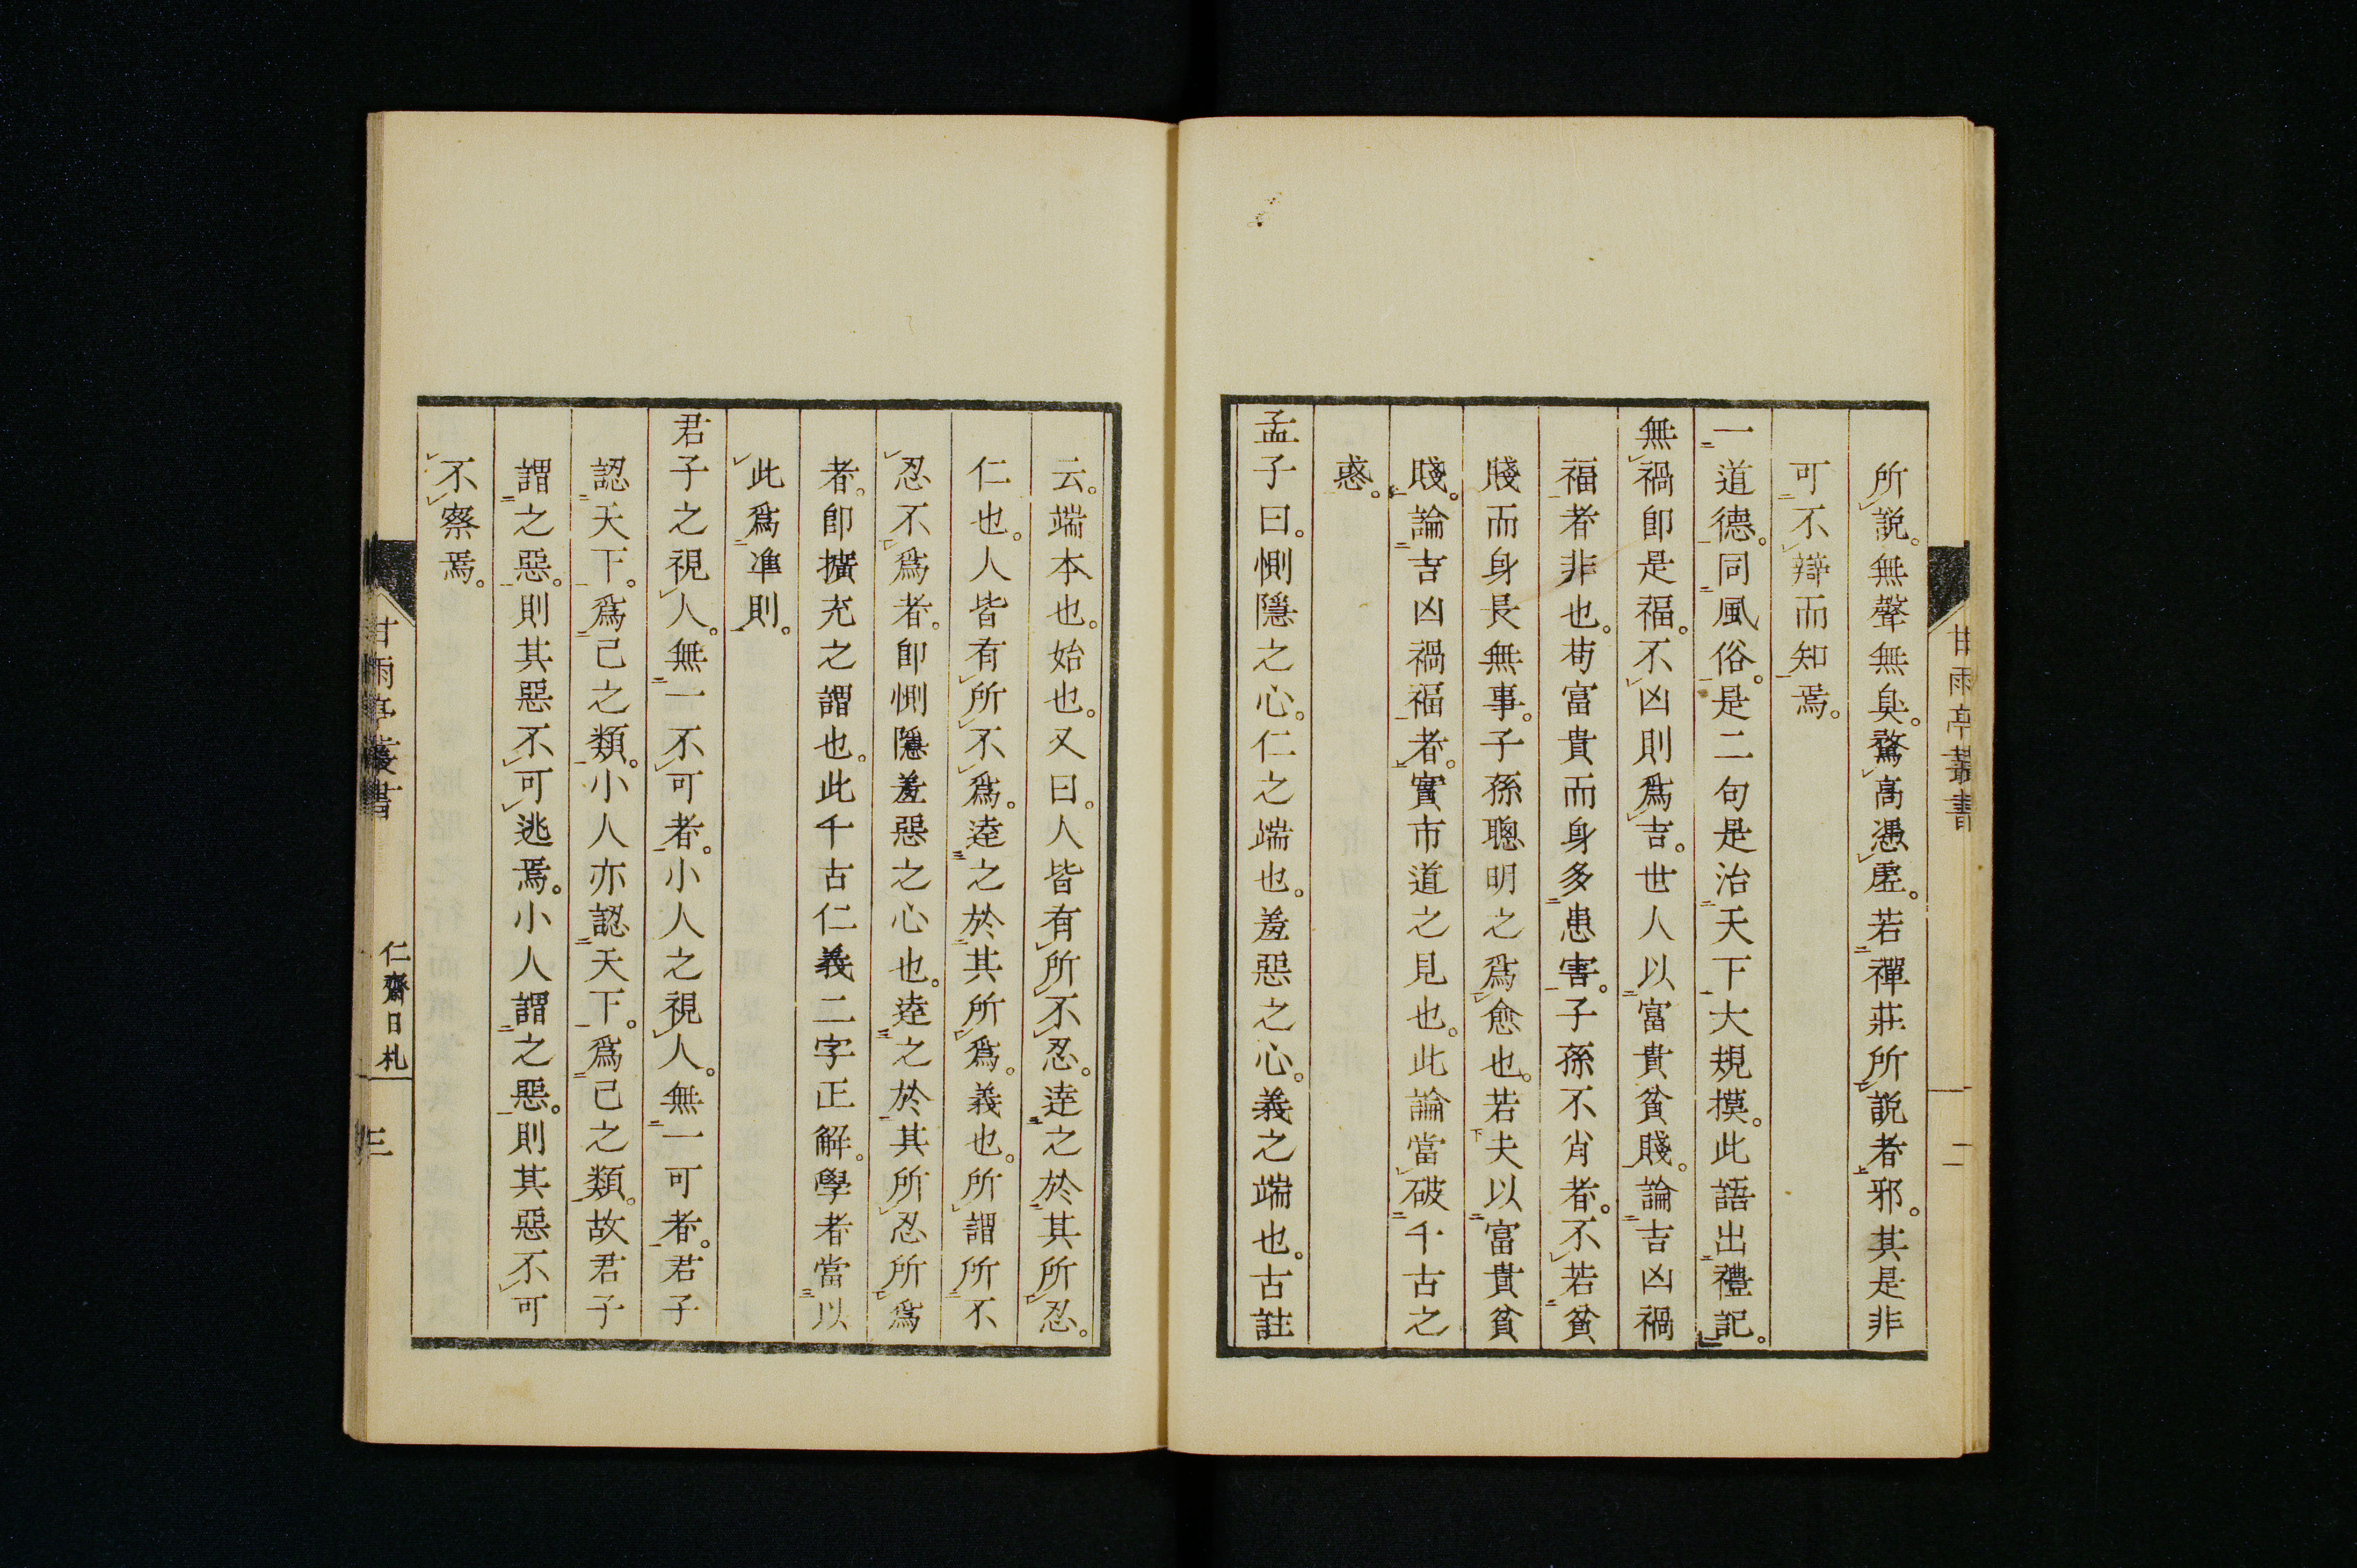 所說。無聲無臭。驁高憑虛。若禪莊所說者邪。其是非
可不辯而知焉。
一道德。同風俗。是二句是治天下大規摸。此語出禮記。
無禍卽是福。不凶則爲吉。世人以富貴貧賤。論吉凶禍
福者非也。苟富貴而身多患害。子孫不肖者。不若貧
賤而身長無事。子孫聰明之爲愈也。若夫以富貴貧
賤。論吉凶禍福者。實市道之見也。此論當破千古之
惑。
孟子曰。惻隱之心。仁之端也。羞惡之心。義之端也。古註
甘雨亭叢書
二
云。端本也。始也。又曰。人皆有所不忍。達之於其所忍。
仁也。人皆有所不爲。達之於其所爲。義也。所謂所不
忍不爲者。卽惻隱羞惡之心也。達之於其所忍所爲
者。卽擴充之謂也。此千古仁義二字正解。學者當以
此爲準則。
君子之視人。無一不可者。小人之視人。無一可者。君子
認天下。爲己之類。小人亦認天下。爲己之類。故君子
謂之惡。則其惡不可逃焉。小人謂之惡。則其惡不可
不察焉。
甘雨亭叢書
仁齋日札
三